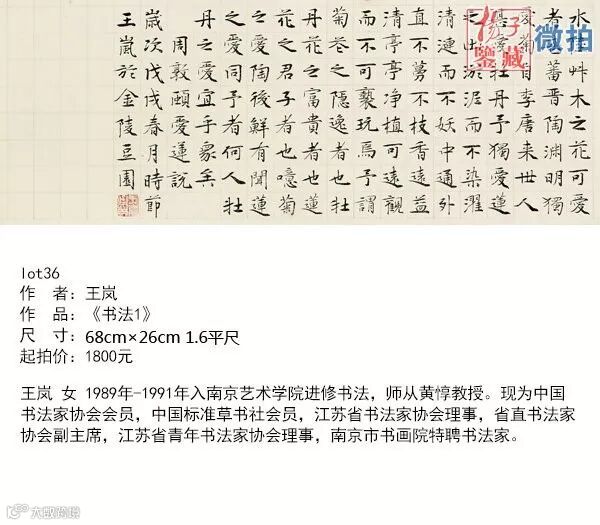 水陸艸木之花可愛
者甚蕃晉陶淵明獨
愛菊自李唐来世人
甚愛牡丹予獨愛蓮
之出淤泥而不染濯
清漣而不妖中通外
直不蔓不枝香遠益
清亭亭净植可遠觀
而不可褻玩焉予謂
菊花之隱逸者也牡
丹花之富貴者也蓮
花之君子者也噫菊
之愛陶後鮮有聞蓮
之愛同予者何人牡
丹之愛宜乎衆矣
周敦頤愛蓮説
歲次戊戌春月時節
王嵐於金陵豆園
扬子
鉴藏
微拍
lot36
作 者：王岚
作 品：《书法1》
尺 寸：68cm×26cm 1.6平尺
起拍价：1800元
王岚 女 1989年-1991年入南京艺术学院进修书法，师从黄惇教授。现为中国
书法家协会会员，中国标准草书社会员，江苏省书法家协会理事，省直书法家
协会副主席，江苏省青年书法家协会理事，南京市书画院特聘书法家。